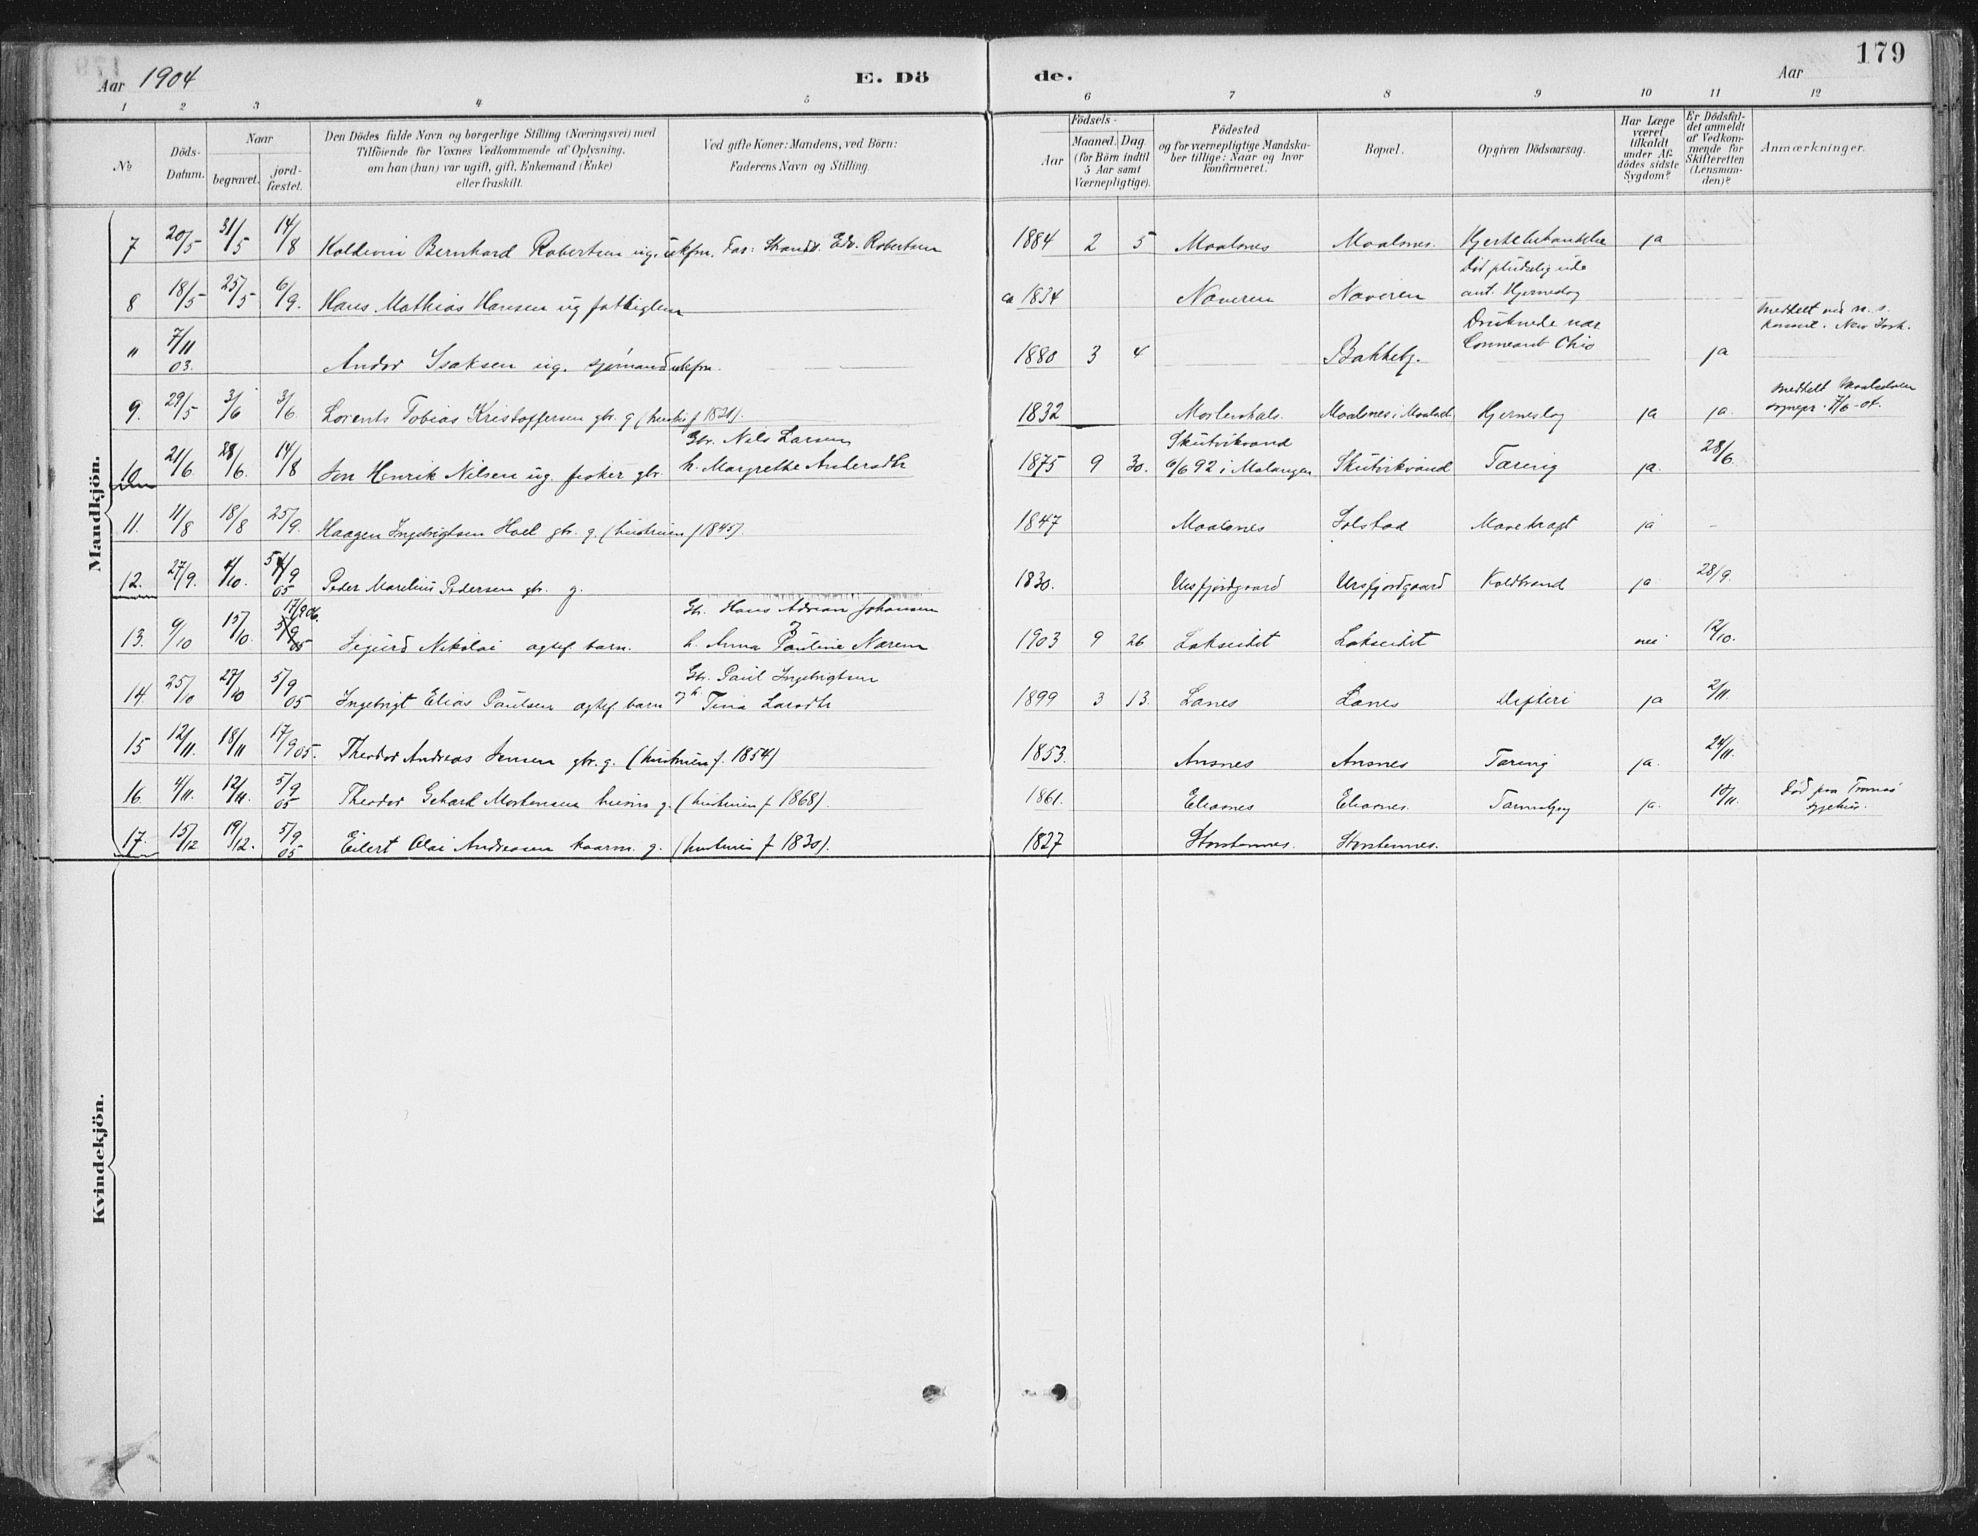 179
Aar 1904 E. Dö de. Aar
1 2 3 4 5 6 7 8 9 10 11 12
No
Döds-Datum.
Naar
begravet.
jord-fæstet.
Den Dödes fulde Navn og borgerlige Stilling (Næringsvei) med
Tilföiende for Voxnes Vedkommende af Oplysning,
om han (hun) var ugift, gift, Enkemand (Enke)
eller fraskilt.
Ved gifte Koner: Mandens, ved Börn:
Faderens Navn og Stilling.
Födsels-
Aar
Maaned. Dag
(for Börn indtil
5 Aar samt
Værnepligtige).
Födested
og for værnepligtige Mandska-
ber tillige: Naar og hvor
konfirmeret.
Bopæl.
Opgiven Dödsaarsag.
Har Læge
været
tilkaldt
under Af-
dödes sidste
Sygdom?
Er Dödsfal-
det anmeldt
af Vedkom-
mende for
Skifteretten
(Lensman-
den)?
Anmærkninger.
Mandkjön.
7 20/5 31/5 14/8 Koldevin Bernhard Robertsen ug. Far: Strands. Edv. Robertsen 1884 2 5 Maalsnes Maalsnes. ja
Död pludselig ude
8 18/5 25/5 6/9. Hans Mathias Hansen ug fattiglem ca 1834 Naveren Naveren ant. Hjerneslag
meddelt ved n. s.
Druknede nær konsul. New York.
" 7/11 03. Andor Isaksen ug. sjømand 1880 3 4 Bakkebg. Conneaut Ohio ja
meddelt Maalselven
9. 29/5 3/6 3/6 Lorents Tobias Kristoffersen gbr. g (hustru f 1821). 1832 Mortenhals. Maalsnes i Maalselv. Hjerneslag ja ja. sognepr. 7/6-04.
Gbr. Nils Larsen Skutvikvand
10. 21/6 28/6. 14/8 Jon Henrik Nilsen ug. fisker gbr. h. Margrethe Andersdtr 1875 9 30. 6/6 92 i Malangen Skutvikvand Tæring ja. 28/6.
11. 11/8 18/8 25/9. Haagen Ingebrigtsen Hoel gbr. g. (hustruen f 1845). 1847 Maalsnes Solstad Mavekræft ja -
12. 27/9. 4/10. 05 Peder Marelius Pedersen gbr. g. 1830. Ursfjordgaard Ursfjordgaard Koldbrand ja 28/9.
17/9 06. Gbr. Hans Adrian Johansen
13. 9/10 15/10. 5/9 05 Sigurd Nikolai agtef barn. h. Anna Pauline 1903 9 26 Lakseidet Lakseidet nei 12/10.
Gbr. Paul Ingebrigtsen
14. 25/10 27/10 5/9 05 Ingebrigt Elias Paulsen agtef barn h Tina Larsdtr 1899 3 13. Lanes Lanes Difteri ja 2/11.
15 12/11. 18/11 17/9 05. Theodor Andreas Jensen gbr. g. (hustruen f. 1854) 1853. Ansnes Ansnes Tæring ja. 24/11.
16. 4/11. 12/11. 5/9 05 Theodor Gehard Mortensen husm g. (hustruen f 1868). 1861. Elvenes Elvenes. ja. 10/11. Død paa Tromsø sygehus.
17. 15/12 19/12. 5/9 05 Eilert Olai Andreasen kaarm. g. (hustruen f 1830). 1827 Storstennes. Storstennes.
Kvindekjön.